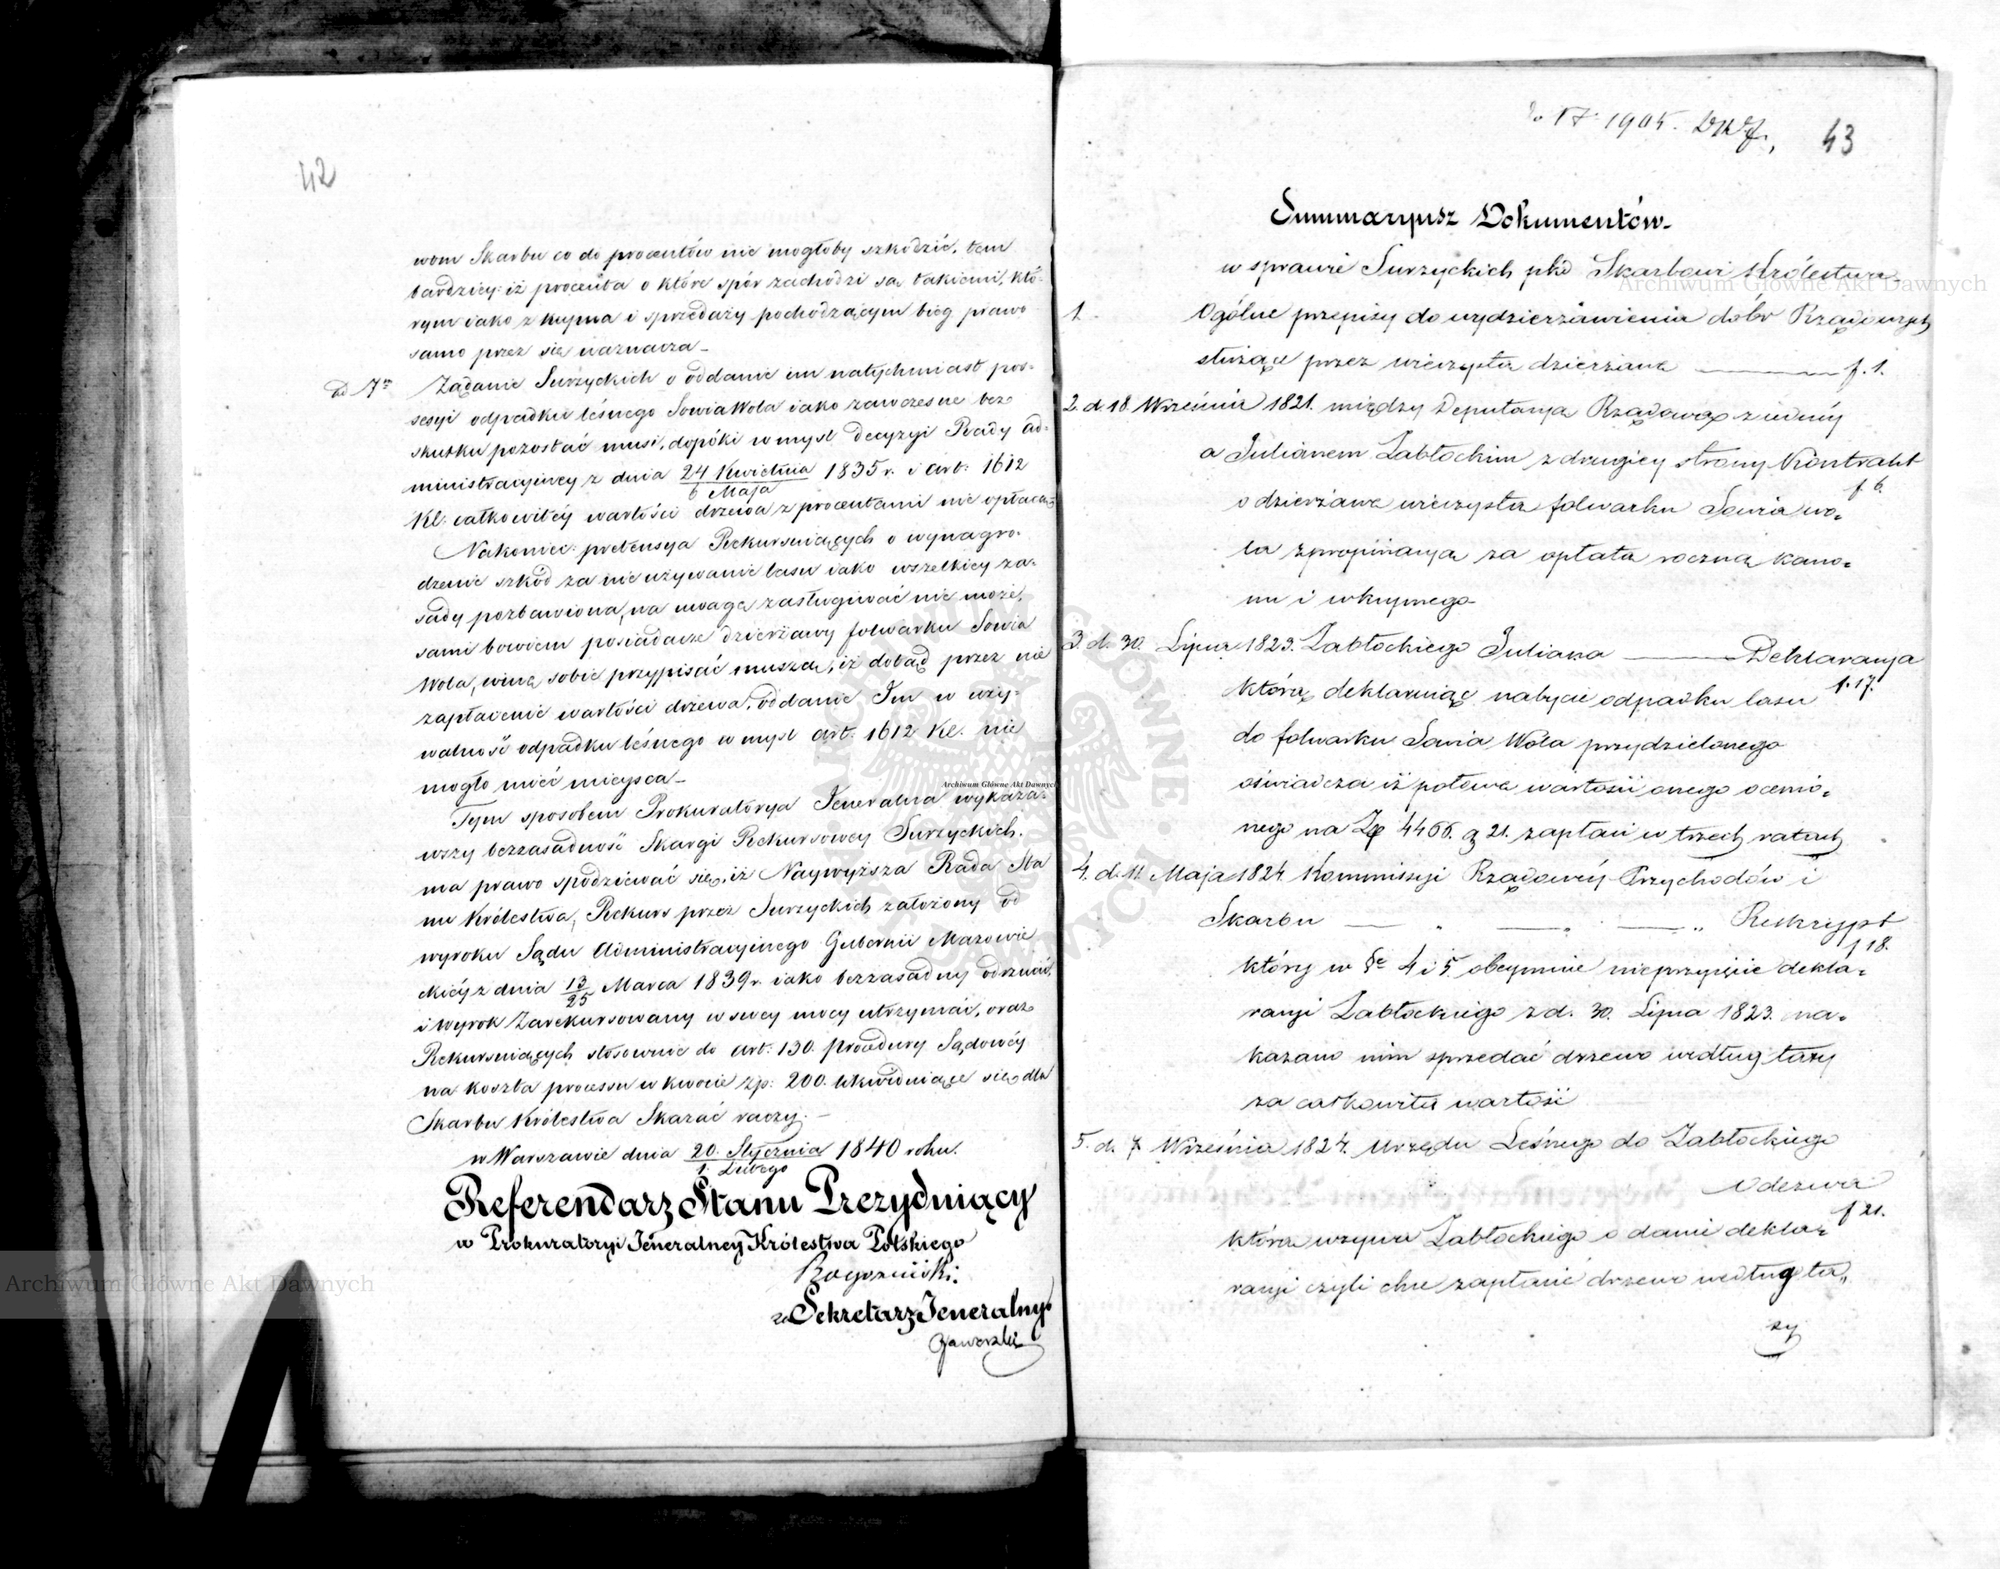 42
wom Skarbu co do procentów nie mogłoby szkodzić, tem
bardziey iż procenta o które spór zachodzi są takiemi, któ-
rym iako z kupna i sprzedaży pochodzącym bieg prawo
samo przez się naznacza_
ad 7m Żądanie Surzyckich o oddanie im natychmiast pos-
sesyi odpadku leśnego Sowia Wola iako zawczesne bez
skutku pozostać musi, dopóki w myśl decyzyi Rady Ad-
ministracyiney z dnia 24 Kwietnia / 6 Maja 1835 r. i art. 1612
Kc. całkowitéy wartości drzewa z procentami nie opłacą
Nakoniec pretensya Rekursuiących o wynagro-
dzenie szkód za nie używanie lasu iako wszelkiey za-
sady pozbawiona, na uwagę zasługiwać nie może,
sami bowiem posiadacze dzierżawy folwarku Sowia
Wola, winę sobie przypisać muszą, iż dotąd przez nie
zapłacenie wartości drzewa, oddanie Im w uży-
walność odpadku leśnego w myśl art. 1612 Kc. nie
mogło mieć mieysca_
Tym sposobem Prokuratorya Jeneralna wykaza-
wszy bezzasadność Skargi Rekursowey Surzyckich,
ma prawo spodziewać się, iż Naywyższa Rada Sta
nu Królestwa, Rekurs przez Surzyckich założony od
wyroku Sądu Administracyinego Gubernii Mazowie
ckiéy z dnia 13/25 Marca 1839 r. iako bezzasadny odrzucić,
i wyrok Zarekursowany w swey mocy utrzymać, oraz
Rekursuiących stosownie do art: 130. procedury Sądowéy
na koszta processu w kwocie zp: 200. likwiduiące się dla
Skarbu Królestwa Skazać raczy. _
w Warszawie dnia 20. Stycznia / 1. Lutego 1840 roku.
Referendarz Stanu Prezyduiący
w Prokuratoryi Jeneralney Królestwa Polskiego
Sekretarz Jeneralny
Jaworski
1905.
43
Summaryusz Dokumentów_
w sprawie Surzyckich pko Skarbowi Królestwa
1. Ogólne przepisy do wydzierżawienia dóbr Rządowych
służące przez wieczystą dzierżawę f. 1.
2. d. 18. Września 1821. między Deputacyą Rządową z iednéy
a Julianem Zabłockim z drugiey strony Kontrakt
f 6.
o dzierżawę wieczystą folwarku Sowia wo-
la z propinacyą za opłatą roczną kano-
nu i wkupnego
3. d. 30. Lipca 1823. Zabłockiego Juliana Deklaracya
f. 17.
którą deklaruiąc nabycie odpadku lasu
do folwarku Sowia Wola przydzielonego
oświadcza iż połowę wartości onego ocenio-
nego na Zp 4466. g 21. zapłaci w trzech ratach
4. d. 11. Maja 1824. Kommissyi Rządowéy Przychodów i
Skarbu Reskrypt
f 18.
który w § 4 i 5. obeymuie nieprzyięcie dekla-
racyi Zabłockiego z d. 30. Lipca 1823. na-
kazano nim sprzedać drzewo według taxy
za całkowitą wartość
5. d. 7 Września 1824. Urzędu Leśnego do Zabłockiego
Odezwa
f 21.
która wzywa Zabłockiego o danie dekla-
racyi czyli chce zapłacić drzewo według ta„
xy
Archiwum Główne Akt Dawnych
Archiwum Główne Akt Dawnych
Archiwum Główne Akt Dawnych